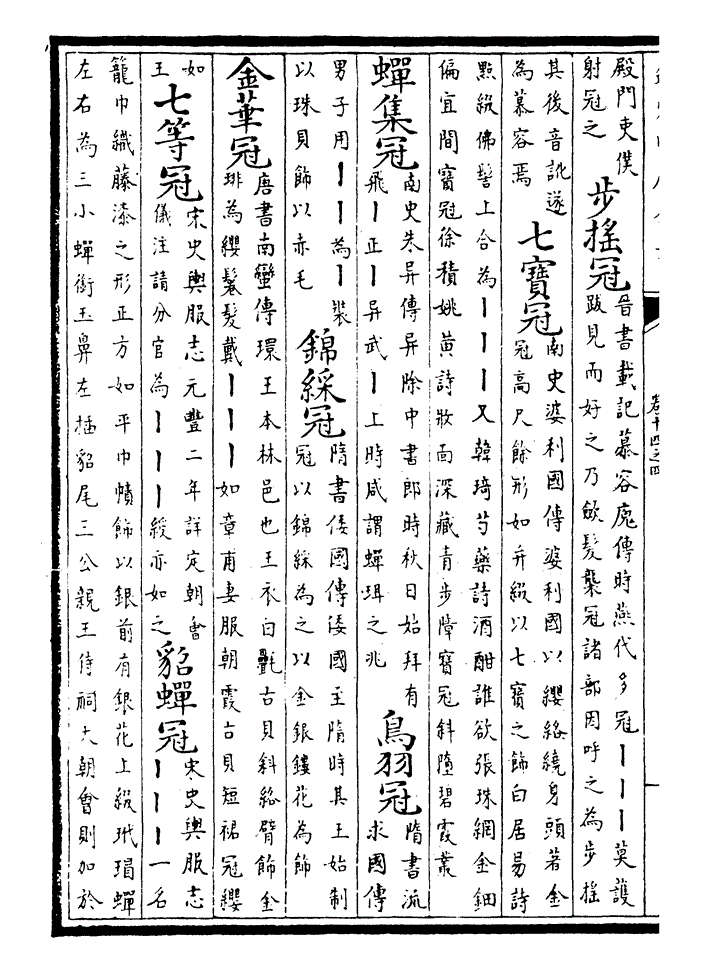 卷十四之四
殿門吏僕
射冠之
步搖冠
晉書載記慕容廆傳時燕代多冠｜｜｜莫護
跋見而好之乃斂髮襲冠諸部因呼之為步搖
其後音訛遂
為慕容焉
七寶冠
南史婆利國傳婆利國以纓絡繞身頭著金
冠高尺餘形如弁綴以七寶之飾白居易詩
點綴佛髻上合為｜｜｜又韓琦芍藥詩酒酣誰欲張珠網金鈿
偏宜間寶冠徐積姚黄詩妝面深藏青步障寶冠斜墮碧霞叢
蟬集冠
南史朱异傳异除中書郎時秋日始拜有
飛｜正｜异武｜上時咸謂蟬珥之兆
鳥羽冠
隋書流
求國傳
男子用｜｜為｜裝
以珠貝飾以赤毛
錦綵冠
隋書倭國傳倭國王隋時其王始制
冠以錦綵為之以金銀鏤花為飾
金華冠
唐書南蠻傳環王本林邑也王衣白氎古貝斜絡臂飾金
琲為纓鬈髮戴｜｜｜如章甫妻服朝霞古貝短裙冠纓
如
王
七等冠
宋史輿服志元豐二年詳定朝會
儀注請分官為｜｜｜綬亦如之
貂蟬冠
宋史輿服志
｜｜｜一名
籠巾織藤漆之形正方如平巾幘飾以銀前有銀花上綴玳瑁蟬
左右為三小蟬銜玉鼻左插貂尾三公親王侍祠大朝會則加於